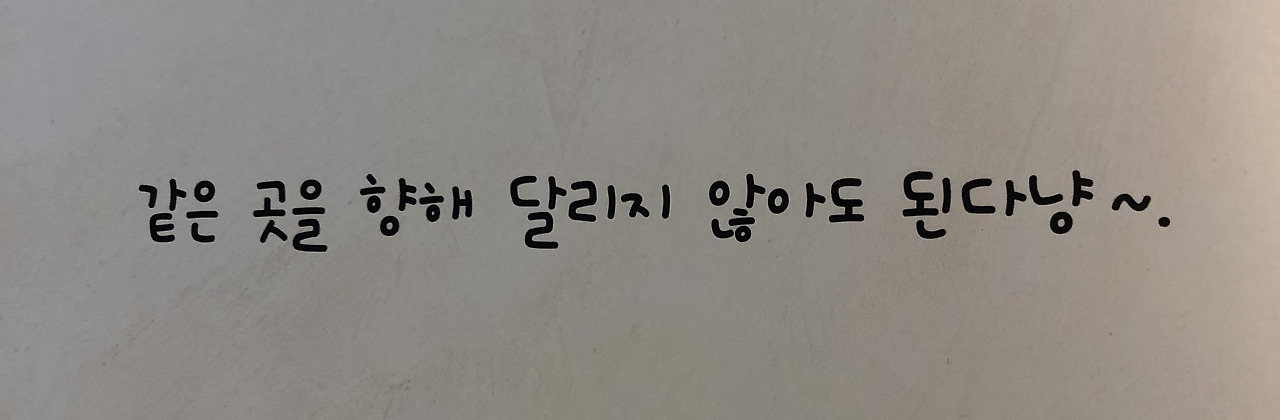 같은 곳을 향해 달리지 않아도 된다냥~.